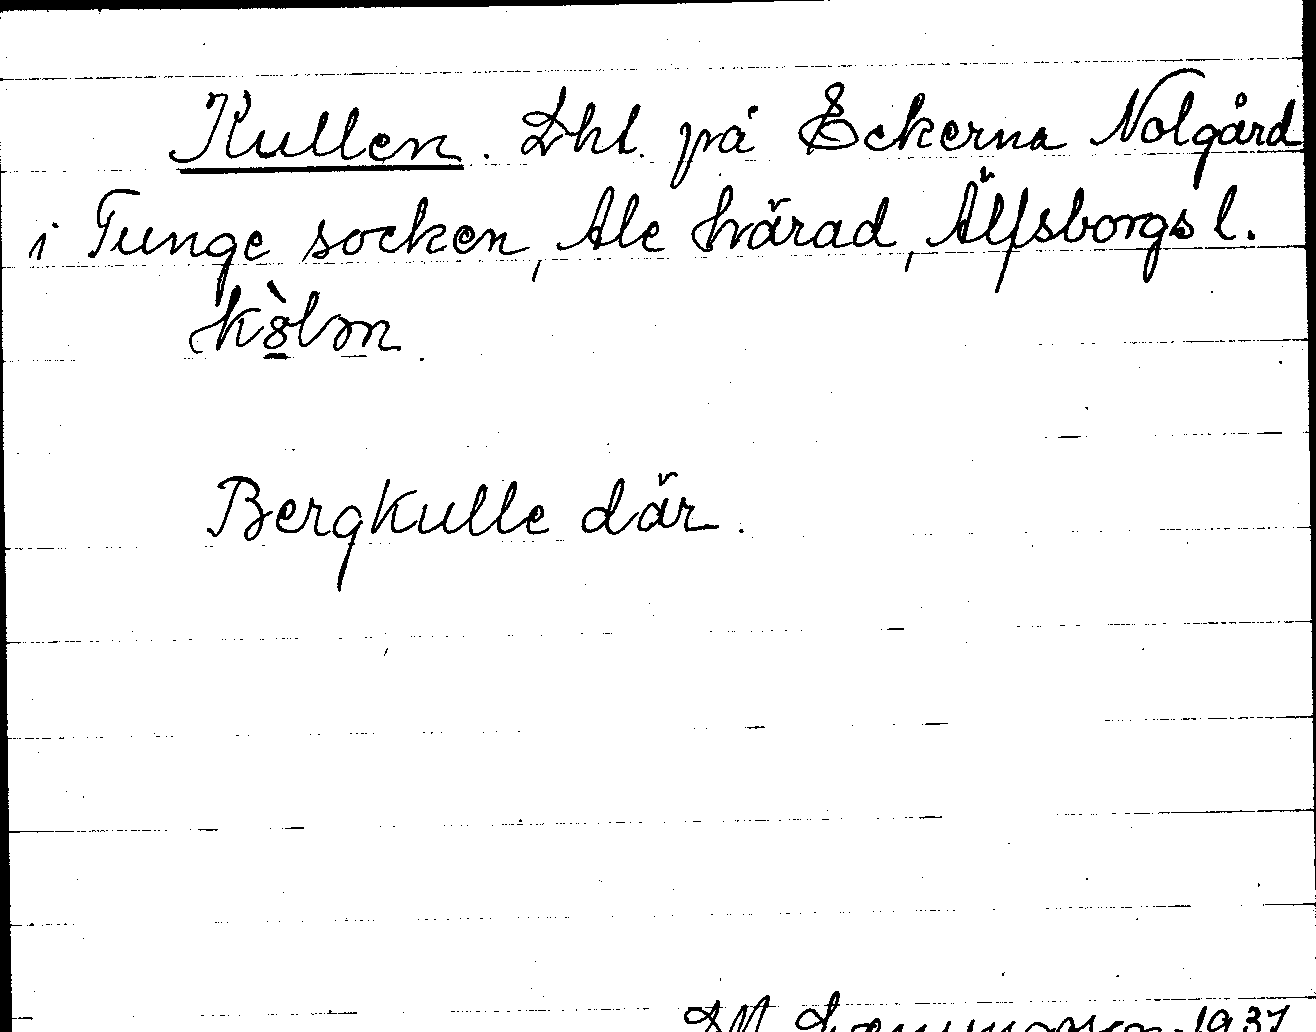 Kullen. Lht. på Eckerna Nolgård
i Tunge socken, Ale härad, Älfsborgs l.
Bergkulle där.
1937